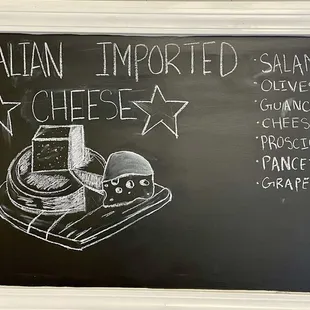 ALIAN IMPORTED
CHEESE
·SALAM
·OLIVES
·GUANC
·CHEES
·PROSCI
·PANCE
·GRAPE